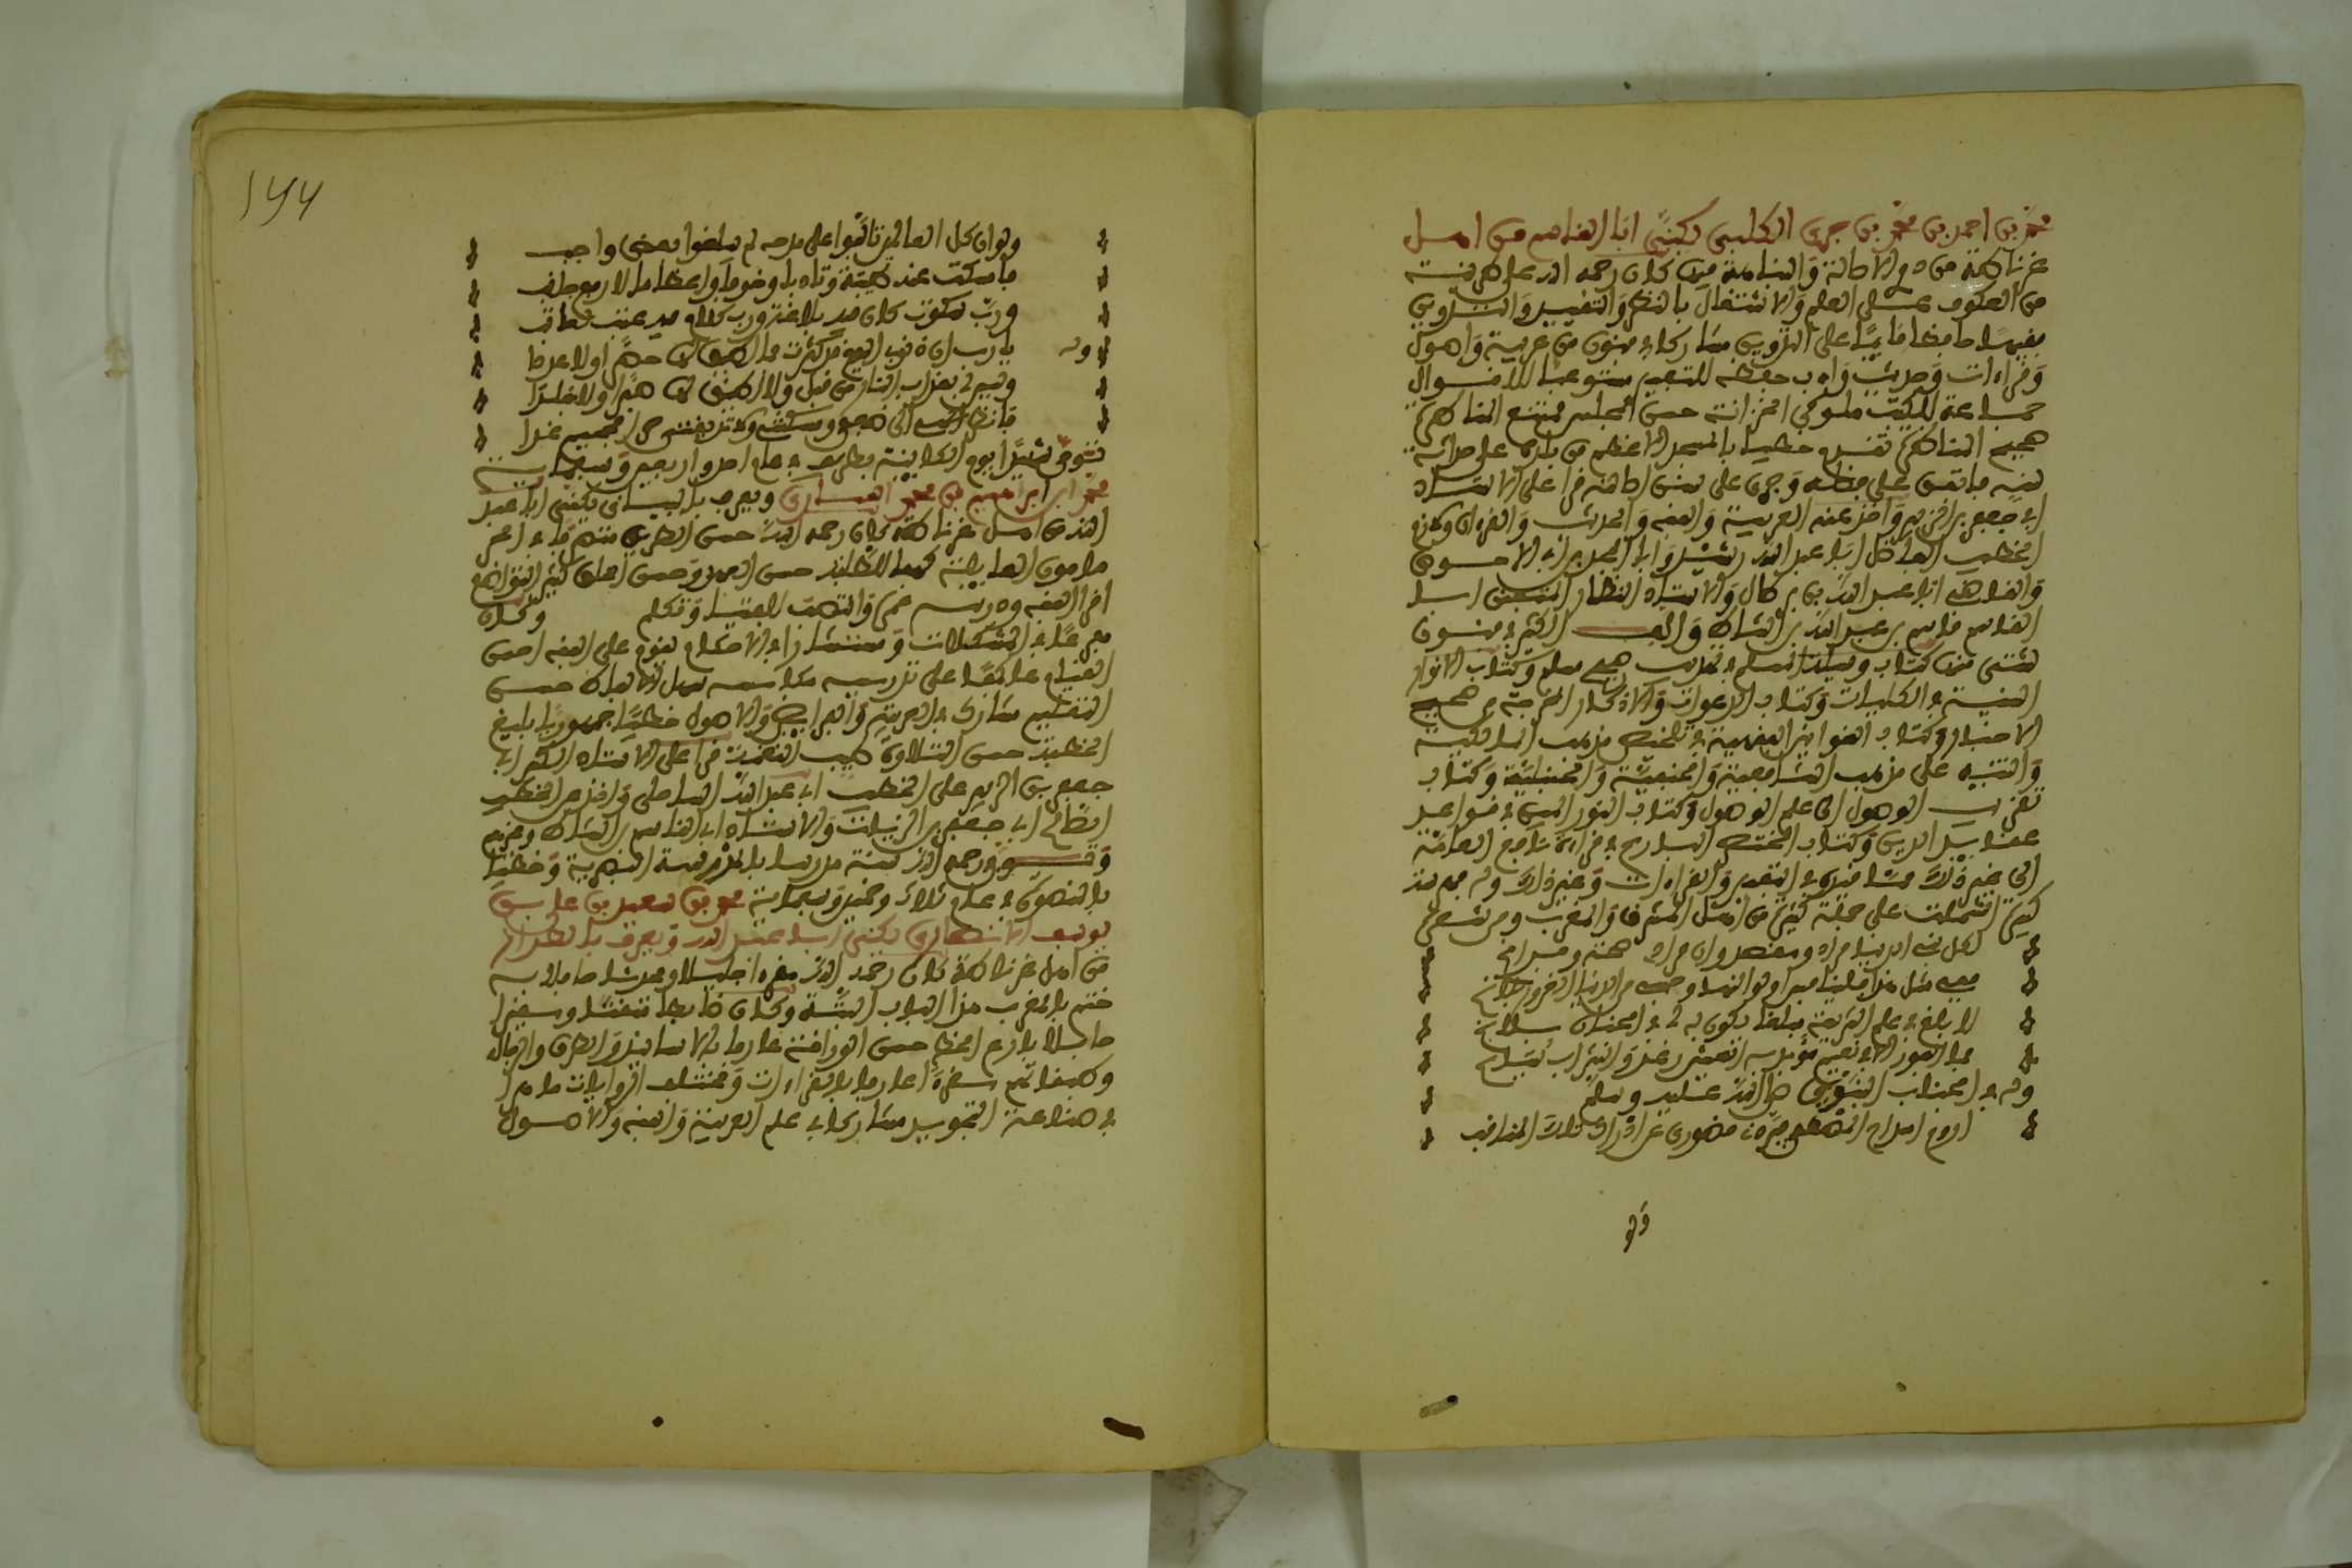 محمد بن احمد بن محمد بن جزي الكلبي يكنى ابا القاسم من اهل
غرناطة من ذوي الاصالة والنباهة فيها كان رحمه الله على طريقة
من العكوف على العلم والاشتغال بالنظر والتقييد والتدوين
فقيها حافظا قائما على التدريس مشاركا في فنون من عربية واصول
وقراءات وحديث وادب حفظة للتفسير مستوعبا للاقوال
جماعة للكتب ملوكي الخزانة حسن المجلس ممتع المحاضرة
صحيح الباطن تقدم خطيبا بالمسجد الاعظم من بلده على حداثة
سنه فاتفق على فضله وجرى على سنن اصالته قرا على الاستاذ
ابي جعفر بن الزبير واخذ عنه العربية والفقه والحديث والقرءان ولازم
الخطيب الفاضل ابا عبد الله بن رشيد وابا المجد بن ابي الاحوص
والقاضي ابا عبد الله بن برطال والاستاذ النظار المتفنن ابا
القاسم قاسم بن عبد الله بن الشاط والف الكثير في فنون
شتى منها كتاب وسيلة المسلم في تهذيب صحيح مسلم وكتاب الانوار
السنية في الكلمات السنية وكتاب الدعوات والاذكار المخرجة من صحيح
الاخبار وكتاب القوانين الفقهية في تلخيص مذهب المالكية
والتنبيه على مذهب الشافعية والحنفية والحنبلية وكتاب
تقريب الوصول الى علم الاصول وكتاب النور المبين في قواعد
عقائد الدين وكتاب المختصر البارع في قراءة نافع
الى غير ذلك مما قيده في التفسير والقراءات وغير ذلك وله فهرسة
كبيرة اشتملت على جملة كثيرة من اهل المشرق والمغرب ومن شعره
لكل بني الدنيا مراد ومقصد وان مرادي صحة وفراغ
ففي مثل هذا فلينافس اولو النهى وحسبي من الدنيا الغرور بلاغ
لابلغ في علم الشريعة مبلغا يكون به لي في الجنان بلاغ
فما الفوز الا في نعيم مؤبد به العيش رغد والشراب يساغ
وله في الجناب النبوي صلى الله عليه وسلم
اروم امتداح المصطفى فيردني قصوري عن ادراك تلك المناقب
ولو
ولو ان كل العالمين تالفوا على مدحه لم يبلغوا بعض واجب
فامسكت عنه هيبة وتادبا وخوفا واعظاما لارفع جانب
ورب سكوت كان فيه بلاغة ورب كلام فيه عتب لعاتب
وله يا رب ان ذنوبي اليوم قد كثرت فما اطيق لها حصرا ولا عددا
وليس لي بعذاب النار من قبل ولا اطيق لها صبرا ولا جلدا
فانظر الهي الى ضعفي ومسكنتي ولا تذيقني حر الجحيم غدا
توفي شهيدا يوم الكائنة بطريف في عام احد واربعين وسبعمائة
محمد بن ابراهيم بن محمد ويعرف بالبياني يكنى ابا عبد
الله من اهل غرناطة كان رحمه الله حسن
كهفا للطلبة حسن العهد وحسن كثير التواضع
اقرا الفقه ودرسه عمره وانتصب للفتيا وتكلم وكان
مفزعا في المشكلات ومستشارا في الاحكام يقوم على الفقه احسن
القيام عاكفا على تدريسه حسن
التعليم مشاركا في العربية والفرائض والاصول خطيبا جهوريا بليغ
الخطبة حسن التلاوة طيب النغمة قرا على الاستاذ الكبير ابي
جعفر بن الزبير على الخطيب ابي عبد الله الساحلي واخذ عن الخطيب
الصالح ابي جعفر بن الزيات والاستاذ ابي القاسم بن الشاط وغيرهم
وتوفي رحمه الله مدرسا بالمدرسة النصرية وخطيبا
بالطاعون في عام ثلاث وخمسين وسبعمائة محمد بن سعيد بن علي بن
يوسف الانصاري يكنى ابا عبد الله ويعرف بالطراز
من اهل غرناطة كان رحمه الله مقرئا جليلا ومحدثا حافلا به
ختم بالمغرب هذا الباب البتة وكان ضابطا متقنا ومقيدا
حافلا بارع الخط حسن الوراقة عارفا بالاسانيد والطرق والرجال
وطبقاتهم مقرئا عارفا بالقراءات ومختلف الروايات ماهرا
في صناعة التجويد مشاركا في علم العربية والفقه والاصول